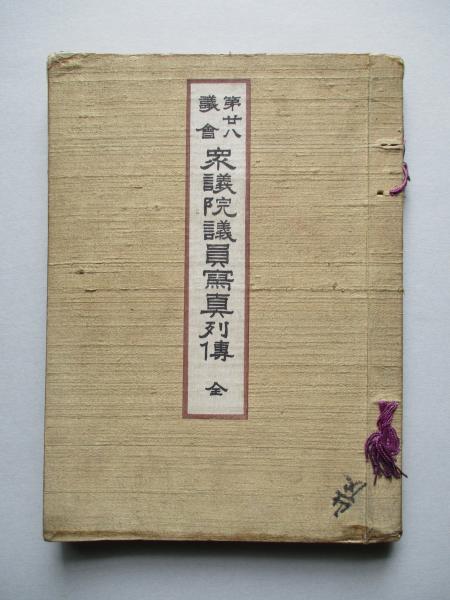 第廿八
議會
衆議院議員寫真列傳
全